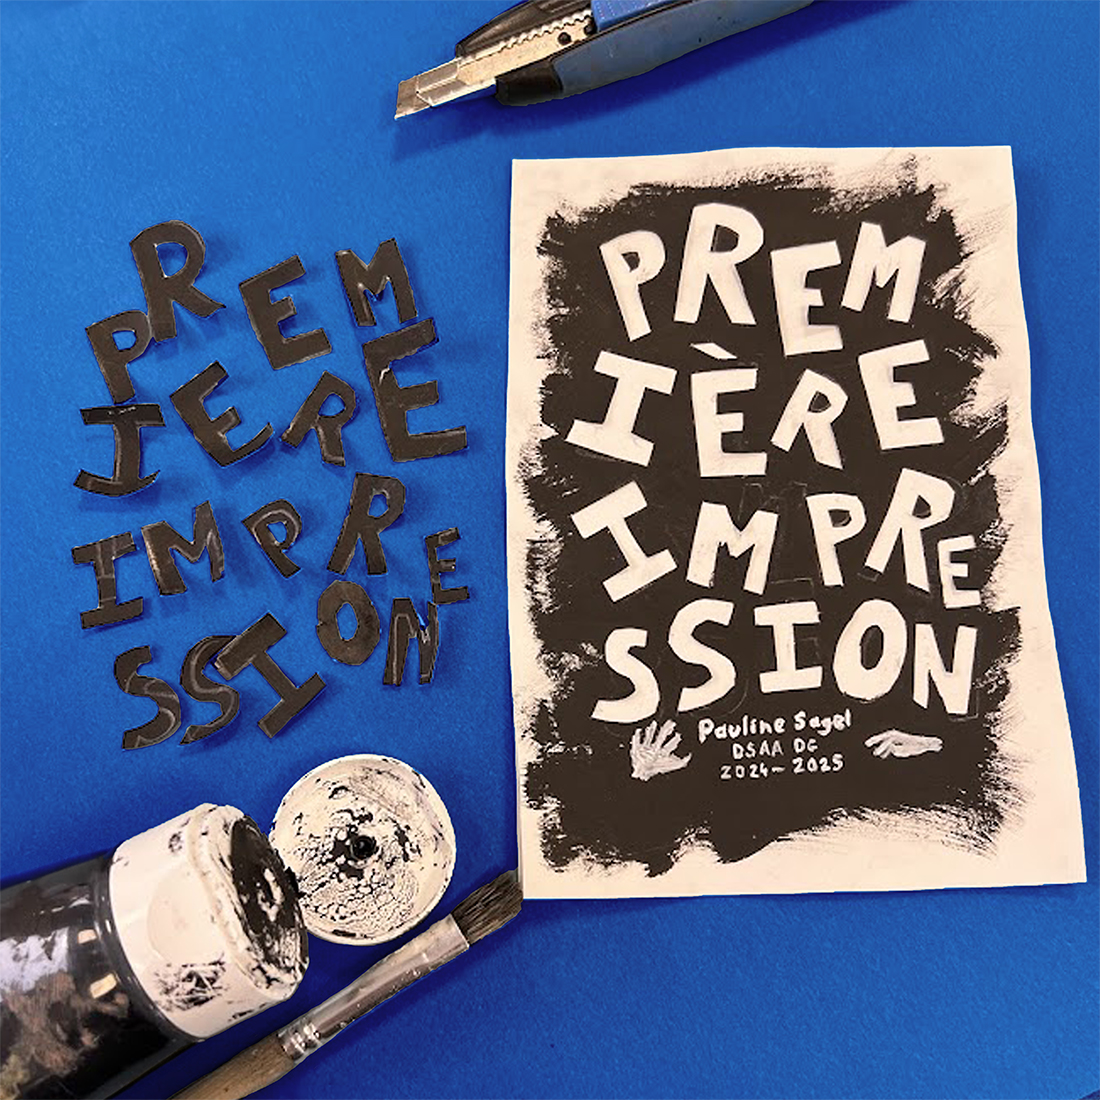 PREM
IERE
IMPRE
SSION
PREM
IÈRE
IMPRE
SSION
Pauline Sagel
DSAA DG
2024-2025